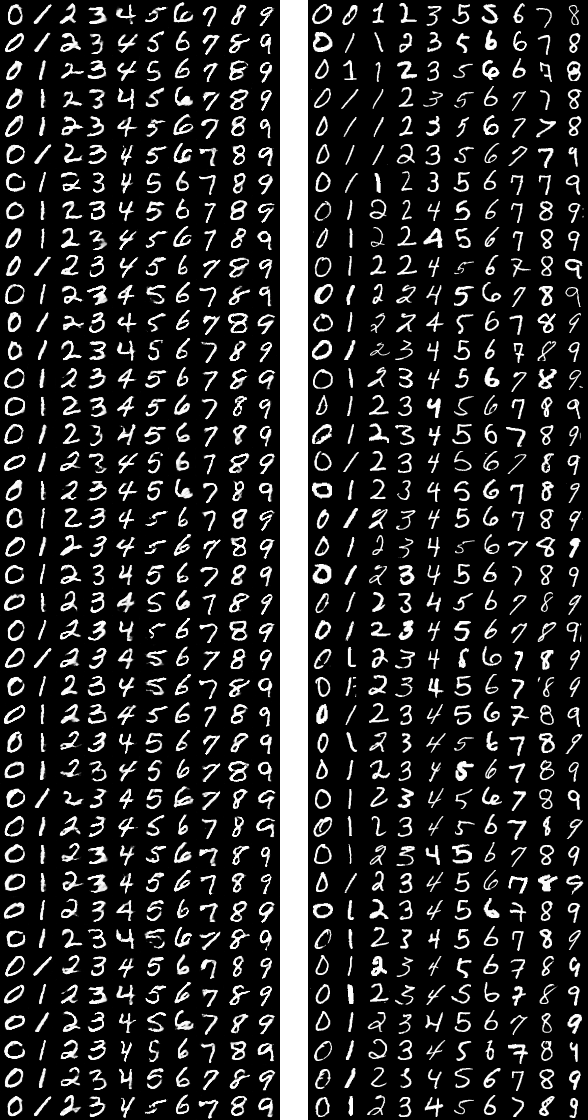 0 1 2 3 4 5 6 7 8 9
0 1 2 3 4 5 6 7 8 9
0 1 2 3 4 5 6 7 8 9
0 1 2 3 4 5 6 7 8 9
0 1 2 3 4 5 6 7 8 9
0 1 2 3 4 5 6 7 8 9
0 1 2 3 4 5 6 7 8 9
0 1 2 3 4 5 6 7 8 9
0 1 2 3 4 5 6 7 8 9
0 1 2 3 4 5 6 7 8 9
0 1 2 3 4 5 6 7 8 9
0 1 2 3 4 5 6 7 8 9
0 1 2 3 4 5 6 7 8 9
0 1 2 3 4 5 6 7 8 9
0 1 2 3 4 5 6 7 8 9
0 1 2 3 4 5 6 7 8 9
0 1 2 3 4 5 6 7 8 9
0 1 2 3 4 5 6 7 8 9
0 1 2 3 4 5 6 7 8 9
0 1 2 3 4 5 6 7 8 9
0 1 2 3 4 5 6 7 8 9
0 1 2 3 4 5 6 7 8 9
0 1 2 3 4 5 6 7 8 9
0 1 2 3 4 5 6 7 8 9
0 1 2 3 4 5 6 7 8 9
0 1 2 3 4 5 6 7 8 9
0 1 2 3 4 5 6 7 8 9
0 1 2 3 4 5 6 7 8 9
0 1 2 3 4 5 6 7 8 9
0 1 2 3 4 5 6 7 8 9
0 1 2 3 4 5 6 7 8 9
0 1 2 3 4 5 6 7 8 9
0 1 2 3 4 5 6 7 8 9
0 1 2 3 4 5 6 7 8 9
0 1 2 3 4 5 6 7 8 9
0 1 2 3 4 5 6 7 8 9
0 1 2 3 4 5 6 7 8 9
0 1 2 3 4 5 6 7 8 9
0 1 2 3 4 5 6 7 8 9
0 1 2 3 4 5 6 7 8 9
0 0 1 2 3 5 5 6 7 8
0 1 1 2 3 5 6 6 7 8
0 1 1 2 3 5 6 6 7 8
0 1 1 2 3 5 6 7 7 8
0 1 1 2 3 5 6 7 7 8
0 1 1 2 3 5 6 7 7 9
0 1 1 2 3 5 6 7 7 9
0 1 2 2 4 5 6 7 8 9
0 1 2 2 4 5 6 7 8 9
0 1 2 2 4 5 6 7 8 9
0 1 2 2 4 5 6 7 8 9
0 1 2 2 4 5 6 7 8 9
0 1 2 3 4 5 6 7 8 9
0 1 2 3 4 5 6 7 8 9
0 1 2 3 4 5 6 7 8 9
0 1 2 3 4 5 6 7 8 9
0 1 2 3 4 5 6 7 8 9
0 1 2 3 4 5 6 7 8 9
0 1 2 3 4 5 6 7 8 9
0 1 2 3 4 5 6 7 8 9
0 1 2 3 4 5 6 7 8 9
0 1 2 3 4 5 6 7 8 9
0 1 2 3 4 5 6 7 8 9
0 1 2 3 4 5 6 7 8 9
0 1 2 3 4 5 6 7 8 9
0 1 2 3 4 5 6 7 8 9
0 1 2 3 4 5 6 7 8 9
0 1 2 3 4 5 6 7 8 9
0 1 2 3 4 5 6 7 8 9
0 1 2 3 4 5 6 7 8 9
0 1 2 3 4 5 6 7 8 9
0 1 2 3 4 5 6 7 8 9
0 1 2 3 4 5 6 7 8 9
0 1 2 3 4 5 6 7 8 9
0 1 2 3 4 5 6 7 8 9
0 1 2 3 4 5 6 7 8 9
0 1 2 3 4 5 6 7 8 9
0 1 2 3 4 5 6 7 8 9
0 1 2 3 4 5 6 7 8 9
0 1 2 3 4 5 6 7 8 9